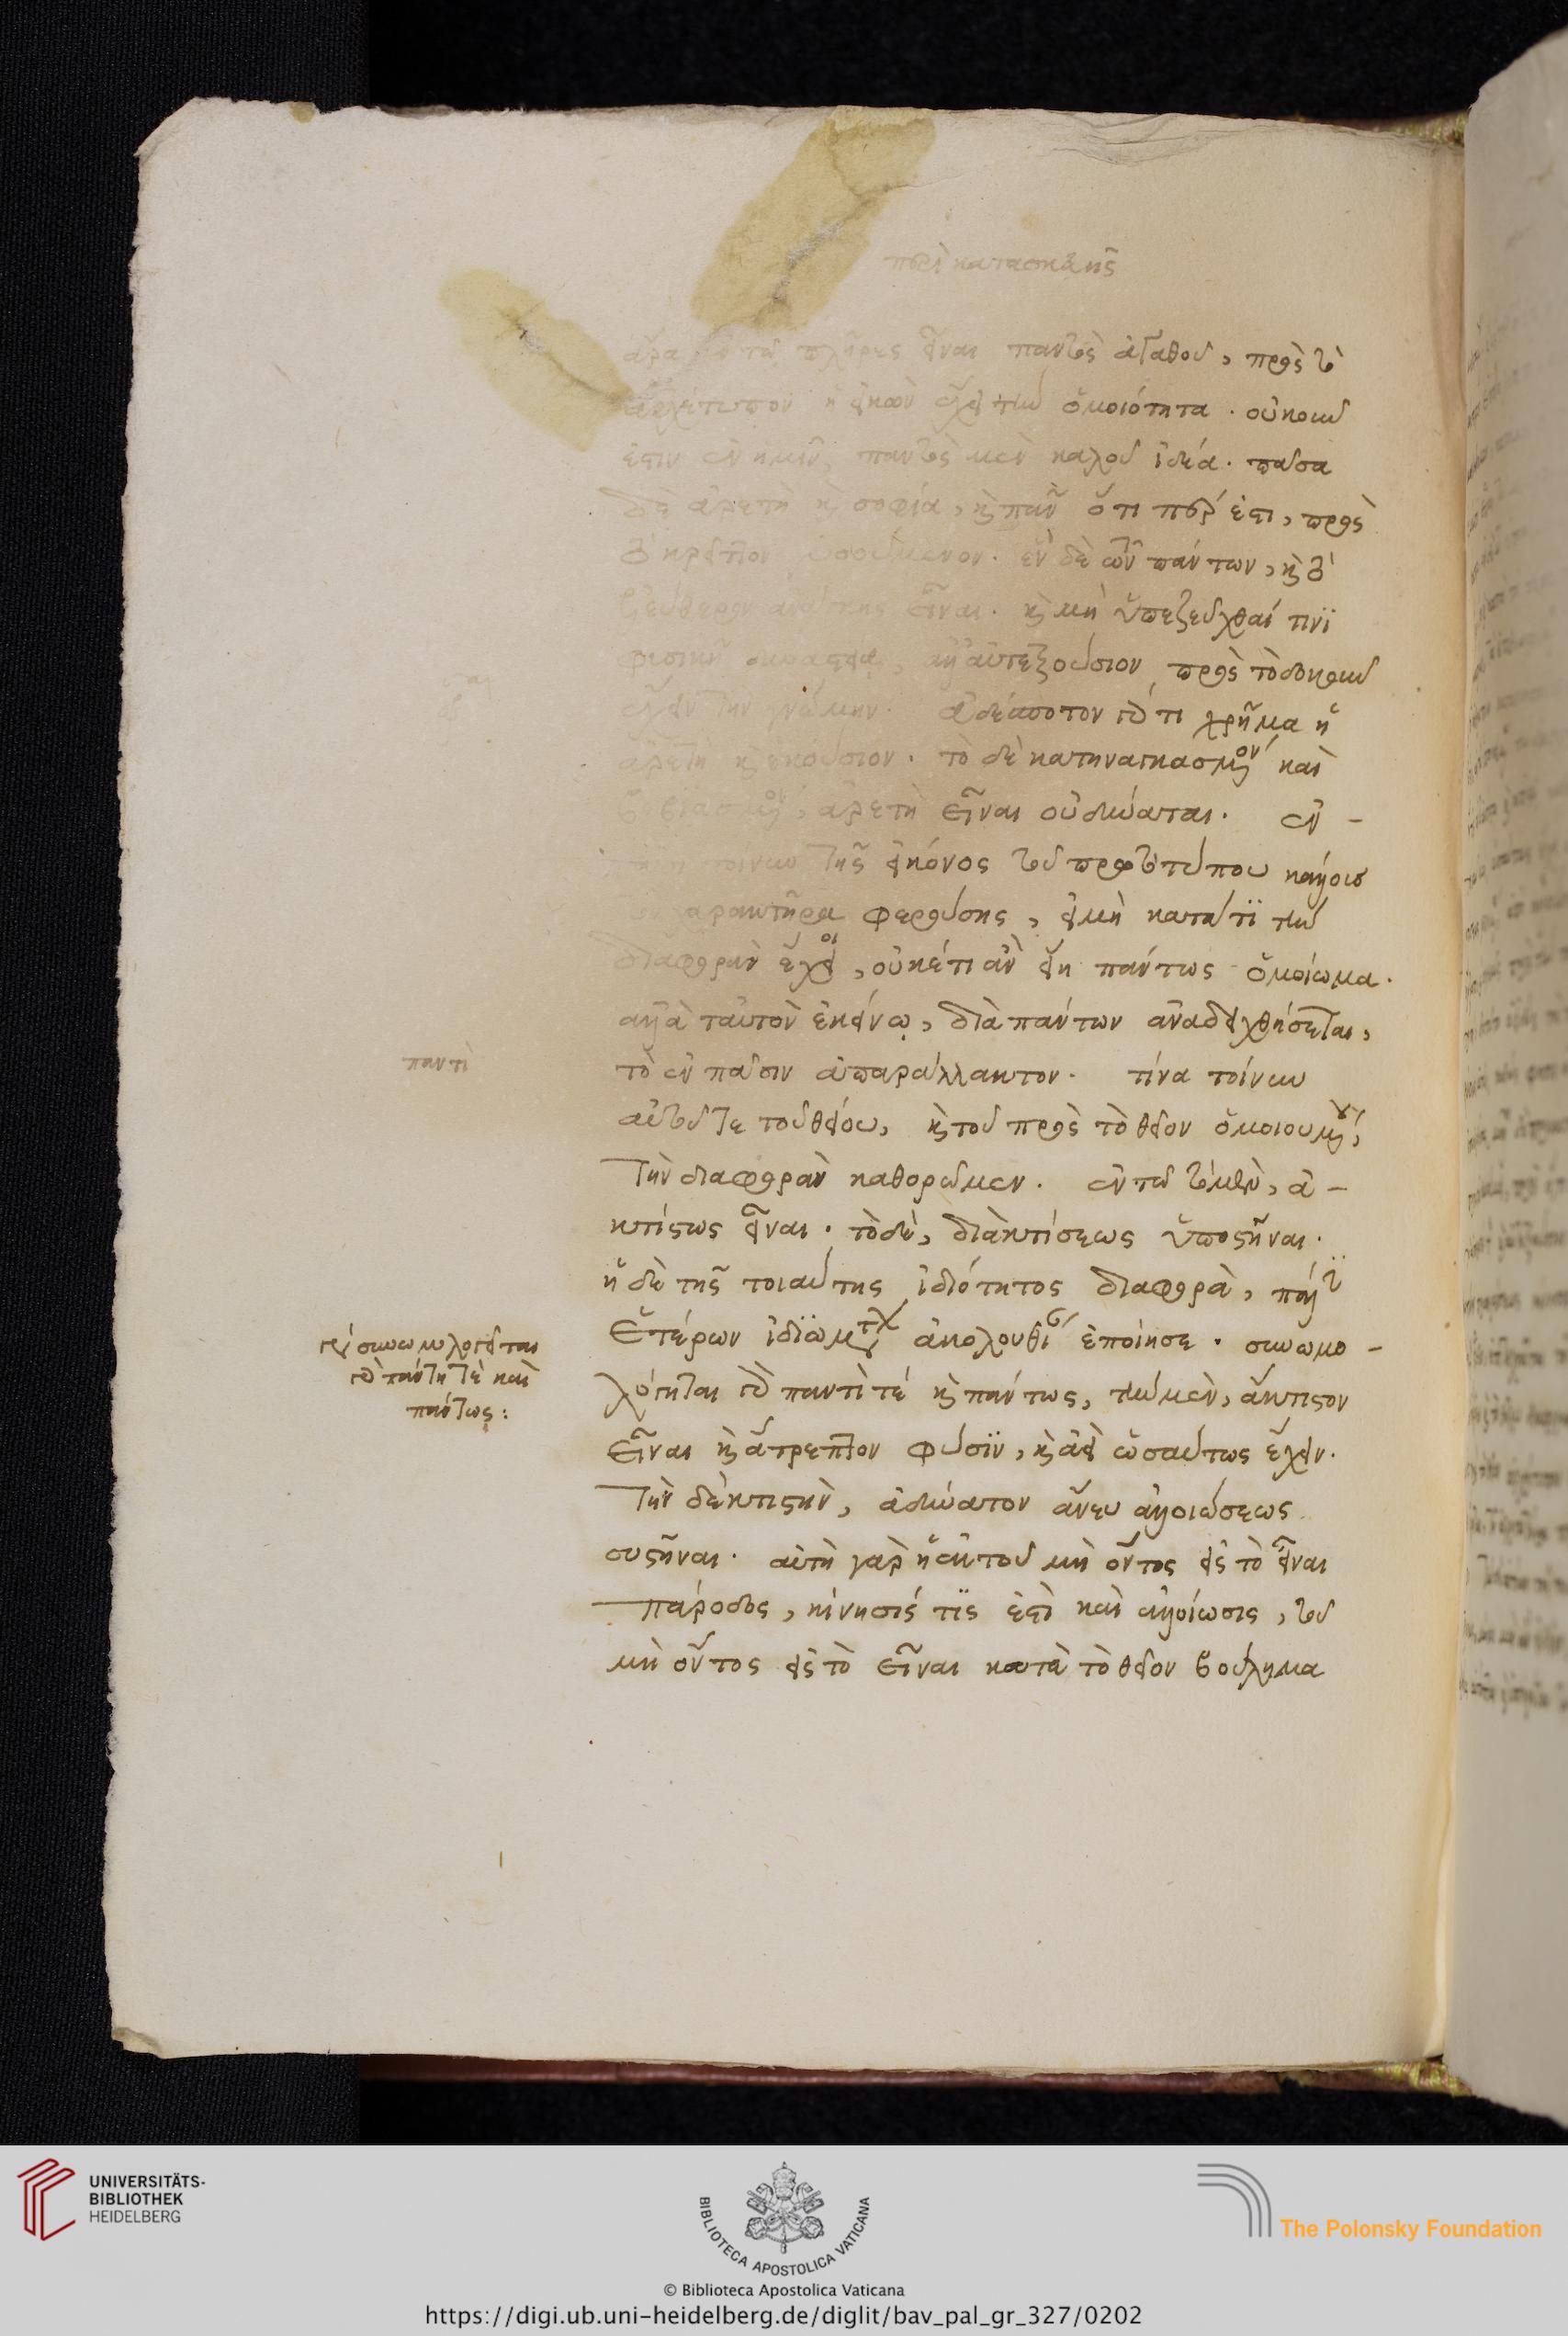 περὶ κατασκευῆς
ἄρα ἐν τῷ πλῆρες εἶναι παντὸς ἀγαθοῦ, πρὸς τὸ
ἀρχέτυπον ἡ εἰκὼν ἔχει τὴν ὁμοιότητα. οὐκοῦν
ἐστιν ἐν ἡμῖν, παντὸς μὲν καλοῦ ἰδέα. πᾶσα
δὲ ἀρετὴ καὶ σοφία, καὶ πᾶν ὅτι περ ἐστι, πρὸς
τὸ κρεῖττον νοούμενον. ἓν δὲ τῶν πάντων, καὶ τὸ
ἐλεύθερον ἀνάγκης εἶναι. καὶ μὴ ὑπεζεῦχθαί τινϊ
φυσικῇ δυναστείᾳ, ἀλλ' αὐτεξούσιον πρὸς τὸ δοκοῦν
ἔχειν τὴν γνώμην. ἀδέσποτον γάρ τι χρῆμα ἡ
ἀρετὴ καὶ ἑκούσιον. τὸ δὲ κατηναγκασμένον καὶ
βεβιασμένον, ἀρετὴ εἶναι οὐ δύναται. ἐν -
τοίνυν τῆς εἰκόνος τοῦ πρωτοτύπου κάλλους
τὸν χαρακτῆρα φερούσης, εἰ μὴ κατά τϊ τὴν
διαφορὰν ἔχοι, οὐκέτι ἂν εἴη πάντως ὁμοίωμα.
ἀλλὰ ταὐτὸν ἐκείνῳ, διὰ πάντων ἀναδειχθήσεται,
παντὶ
τὸ ἐν πᾶσιν ἀπαράλλακτον. τίνα τοίνυν
αὐτοῦ τε τοῦ θείου, καὶ τοῦ πρὸς τὸ θεῖον ὁμοιουμένου,
τὴν διαφορὰν καθορῶμεν. ἐν τῷ τὸ μὲν, ἀ -
κτίστως εἶναι. τὸ δὲ, διὰ κτίσεως ὑποστῆναι.
ἡ δὲ τῆς τοιαύτης ἰδιότητος διαφορὰ, πάλιν
ἑτέρων ἰδϊωμάτων ἀκολουθίαν ἐποίησε. συνωμο -
γὰρ συνωμολογεῖται
γὰρ πάντη τὲ καὶ
πάντως:
λόγηται γὰρ παντὶ τέ καὶ πάντως, τὴν μὲν, ἄκτιστον
εἶναι καὶ ἄτρεπτον φύσϊν, καὶ ἀεὶ ὡσαύτως ἔχειν.
τὴν δὲ κτιστὴν, ἀδύνατον ἄνευ ἀλλοιώσεως
συστῆναι. αὐτὴ γὰρ ἡ ἐκ τοῦ μὴ ὄντος εἰς τὸ εἶναι
πάροδος, κίνησίς τϊς ἐστὶ καὶ ἀλλοίωσις, τοῦ
μὴ ὄντος εἰς τὸ εἶναι κατὰ τὸ θεῖον βούλημα
UNIVERSITÄTS-
BIBLIOTHEK
HEIDELBERG
BIBLIOTECA APOSTOLICA VATICANA
The Polonsky Foundation
© Biblioteca Apostolica Vaticana
https://digi.ub.uni-heidelberg.de/diglit/bav_pal_gr_327/0202